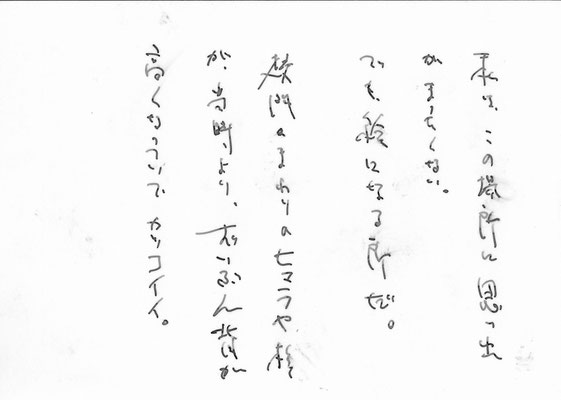 私は、この場所に思い出
がまったくない。
でも、絵になる所だ。
校門のまわりのヒマラヤ杉
が、当時より、ずいぶん背が
高くなっていて カッコイイ。